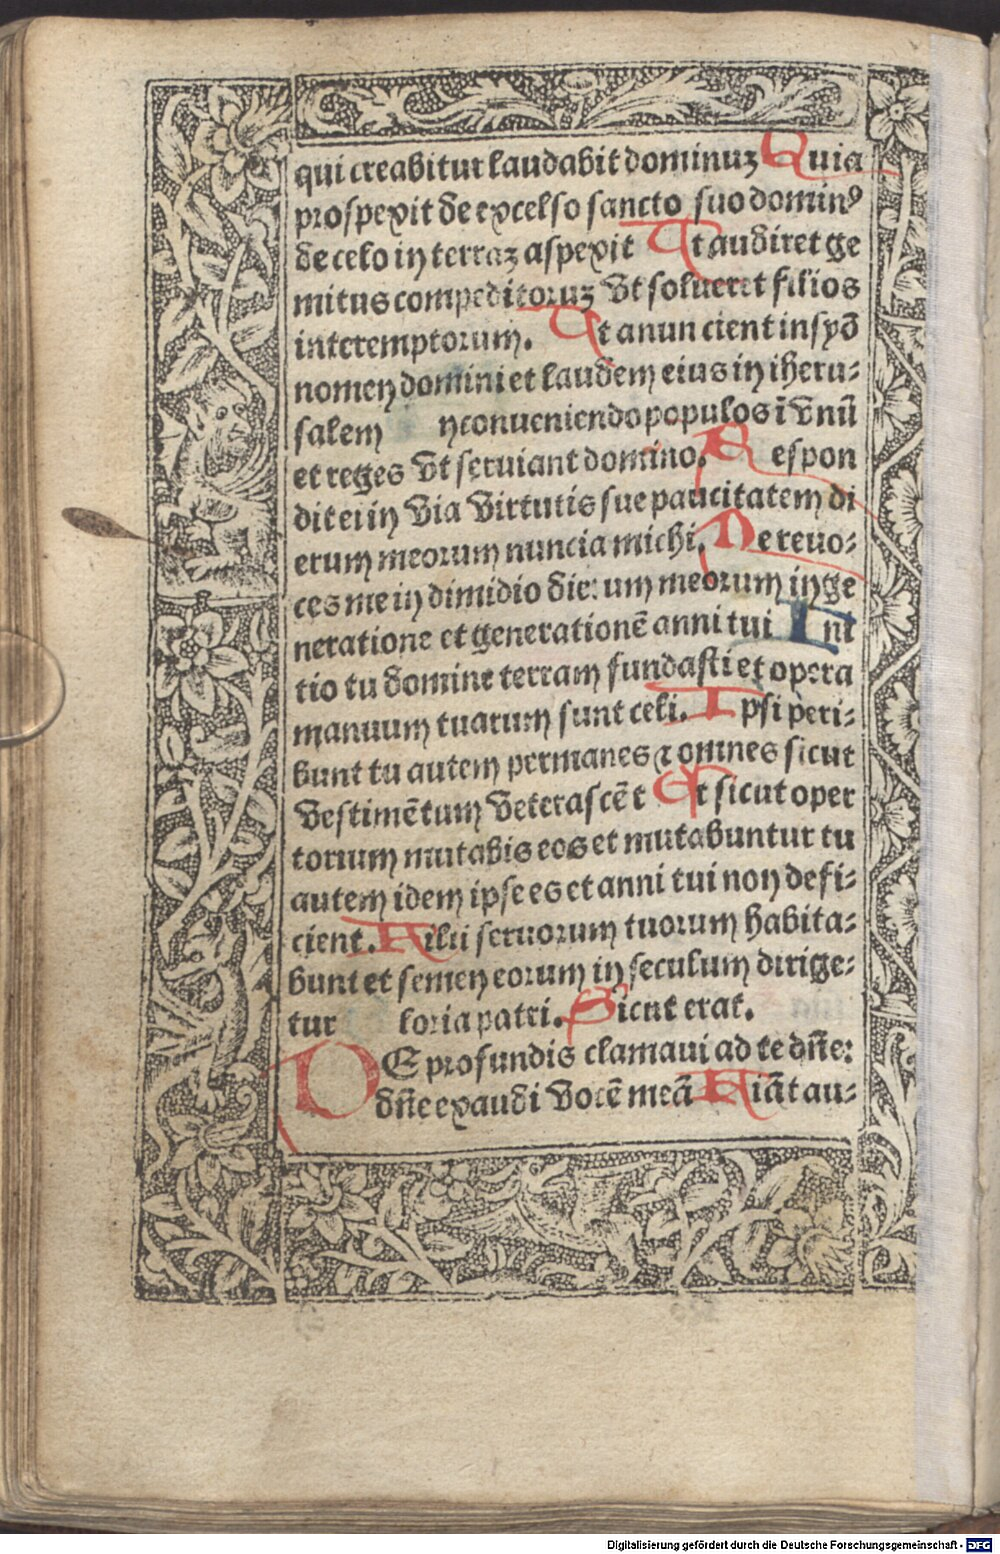 qui creabitur laudabit dominuz Quia
prospexit de excelso sancto suo dominꝰ
de celo in terraz aspexit Ut audiret ge
mitus compeditoruz vt solueret filios
interemptorum. Ut anuncient in syō
nomen domini et laudem eius in iheru-
salem nconueniendo populos ī vnū
et reges vt seruiant domino. Respon
dit ei in via virtutis sue paucitatem di
erum meorum nuncia michi. Ne reuo-
ces me in dimidio dierum meorum in ge
neratione et generationē anni tui Ini
tio tu domine terram fundasti et opera
manuum tuarum sunt celi. Ipsi peri-
bunt tu autem permanes ⁊ omnes sicut
vestimētum veterascēt Et sicut oper
torium mutabis eos et mutabuntur tu
autem idem ipse es et anni tui non defi-
cient. Filii seruorum tuorum habita-
bunt et semen eorum in seculum dirige-
tur loria patri. Sicut erat.
DE profundis clamaui ad te dn̄e:
dn̄e exaudi vocē meā Fiāt au-
Digitalisierung gefördert durch die Deutsche Forschungsgemeinschaft - DFG